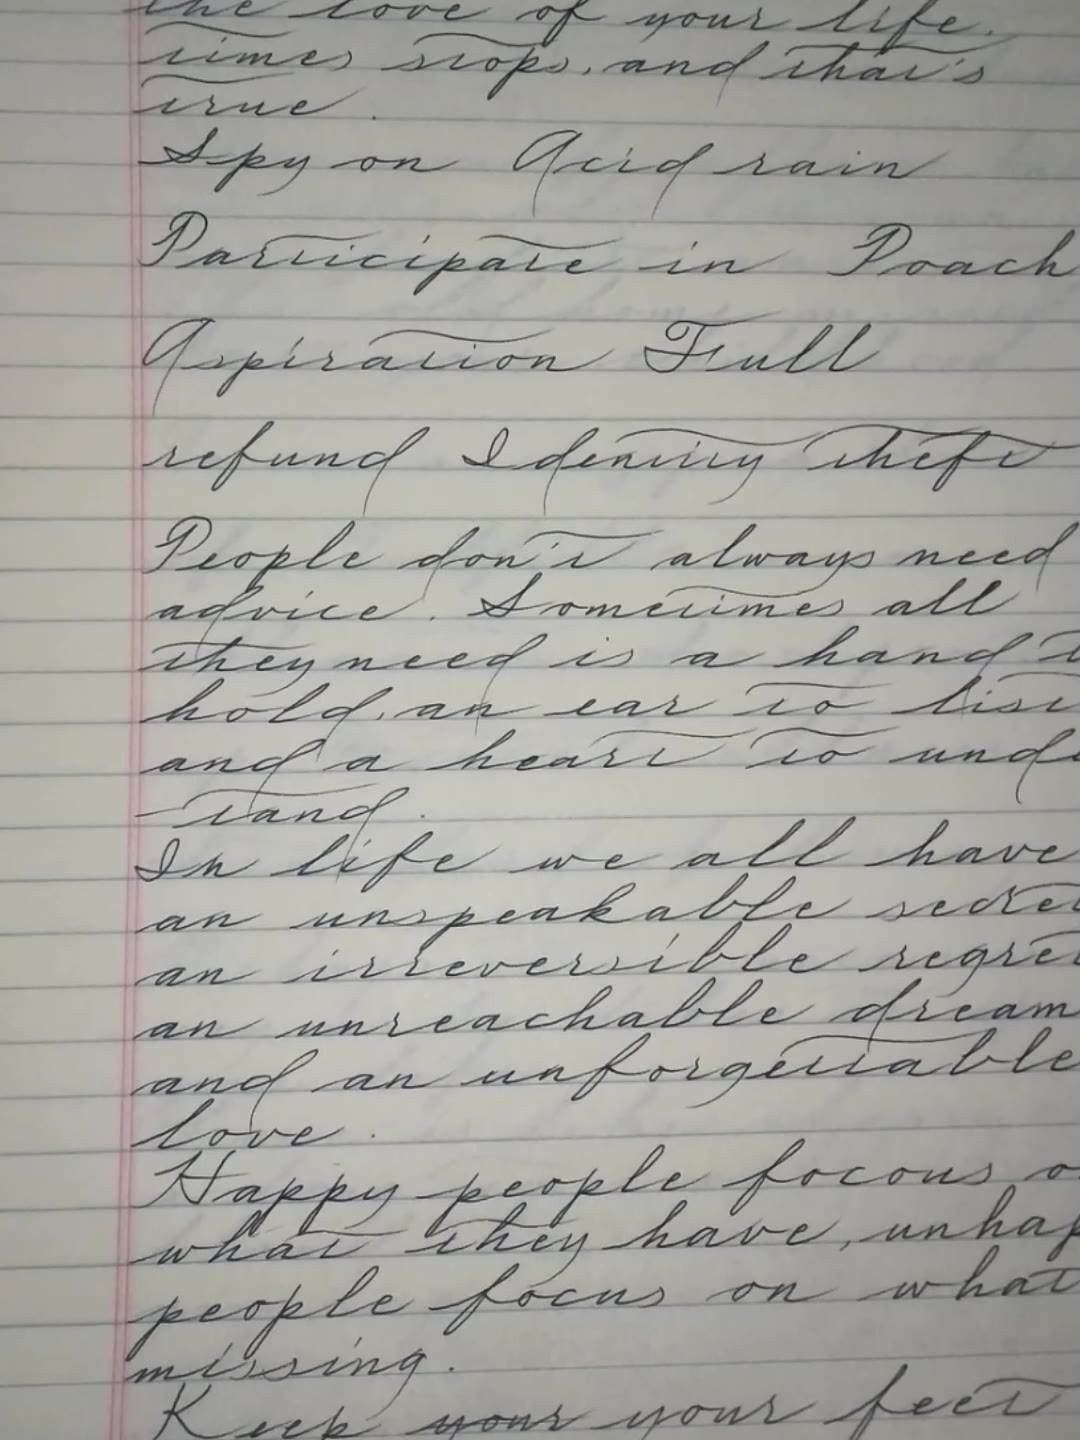 the love of your life.
times stops, and that's
true.
Spy on Acid rain
Participate in Poach
Aspiration Full
refund Identity theft
People don't always need
advice. Sometimes all
they need is a hand t
hold, an ear to list
and a heart to unde
-tand.
In life we all have
an unspeakable secret
an irreversible regret
an unreachable dream
and an unforgettable
love.
Happy people focous o
what they have, unhap
people focus on what
missing.
Keep your your feet